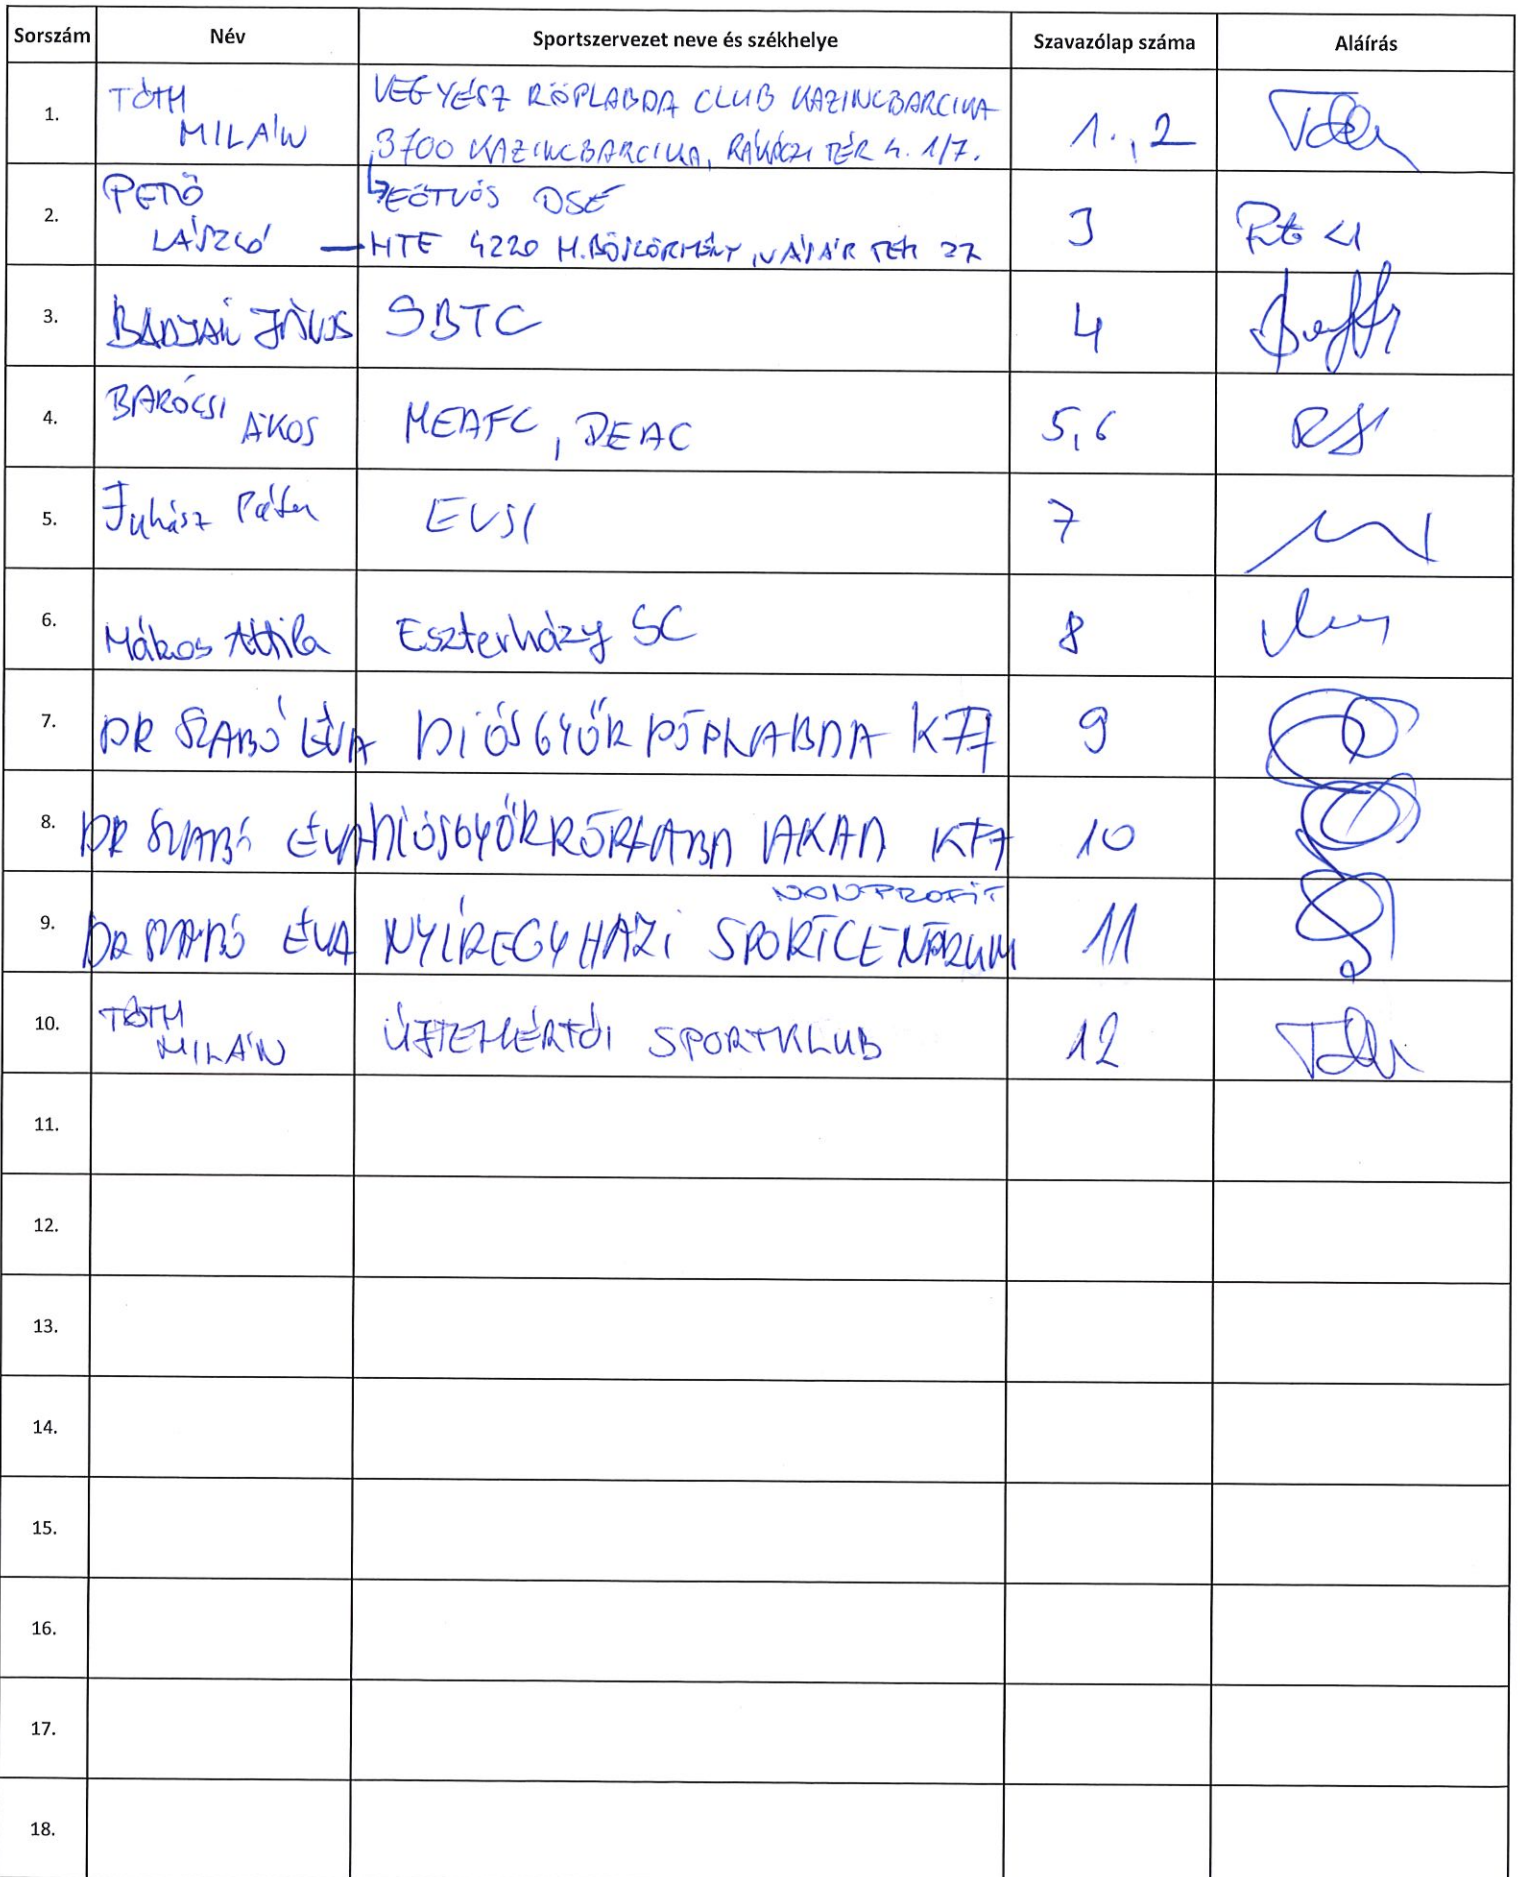 Sorszám Név Sportszervezet neve és székhelye Szavazólap száma Aláírás
1. TÓTH MILÁN VEGYÉSZ RÖPLABDA CLUB KAZINCBARCIKA 1., 2
3700 KAZINCBARCIKA, RÁKÓCZI TÉR 4. 1/7.
2. PETŐ LÁSZLÓ EÖTVÖS DSE 3
HTE 4220 H.BÖSZÖRMÉNY, 27
3. SBTC 4
4. BARÓCSI ÁKOS MEAFC, DEAC 5,6
5. Juhász Péter EVSI 7
6. Mákos Attila Eszterházy SC 8
7. DR SZABÓ ÉVA DIÓSGYŐR RÖPLABDA KFT 9
8. DR SZABÓ ÉVA DIÓSGYŐR RÖPLABDA AKAD KFT 10
NONPROFIT
9. DR SZABÓ ÉVA NYÍREGYHÁZI SPORTCENTRUM 11
10. TÓTH MILÁN ÚJFEHÉRTÓI SPORTKLUB 12
11.
12.
13.
14.
15.
16.
17.
18.